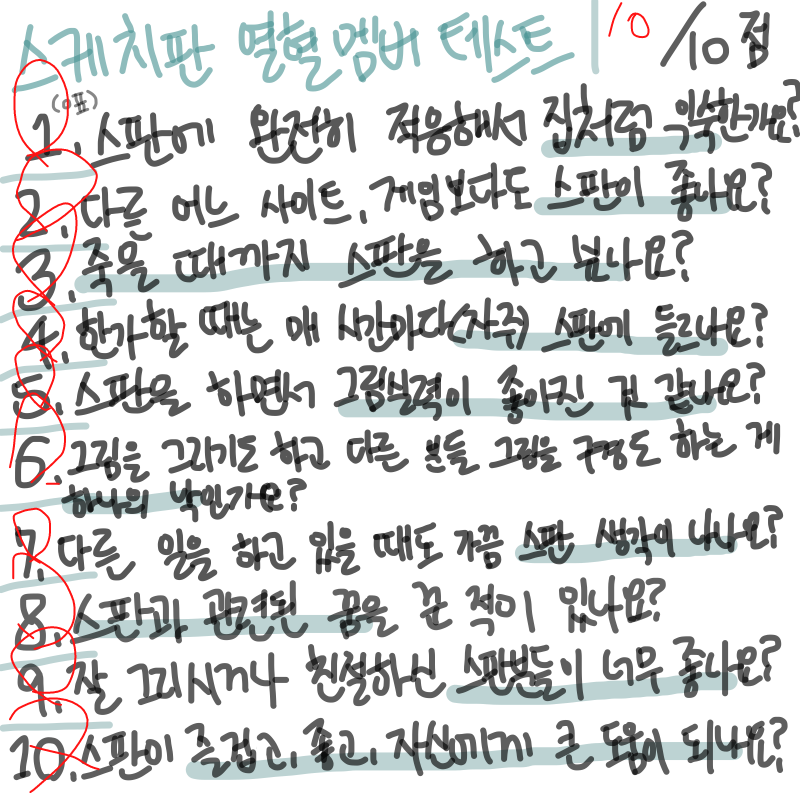 스케치판 열혈멤버 테스트 10/10점
(이곳)
1. 스판에 완전히 적응해서 집처럼 익숙한가요?
2. 다른 어느 사이트, 게임보다도 스판이 좋나요?
3. 죽을 때까지 스판을 하고 싶나요?
4. 한가할 때는 매 시간마다(자주) 스판에 들르나요?
5. 스판을 하면서 그림실력이 좋아진 것 같나요?
6. 그림을 그리기도 하고 다른 분들 그림을 구경도 하는 게
하나의 낙인가요?
7. 다른 일을 하고 있을 때도 가끔 스판 생각이 나나요?
8. 스판과 관련된 꿈을 꾼 적이 있나요?
9. 잘 그리시거나 친절하신 스판분들이 너무 좋나요?
10. 스판이 즐겁고, 좋고, 자신에게 큰 도움이 되나요?